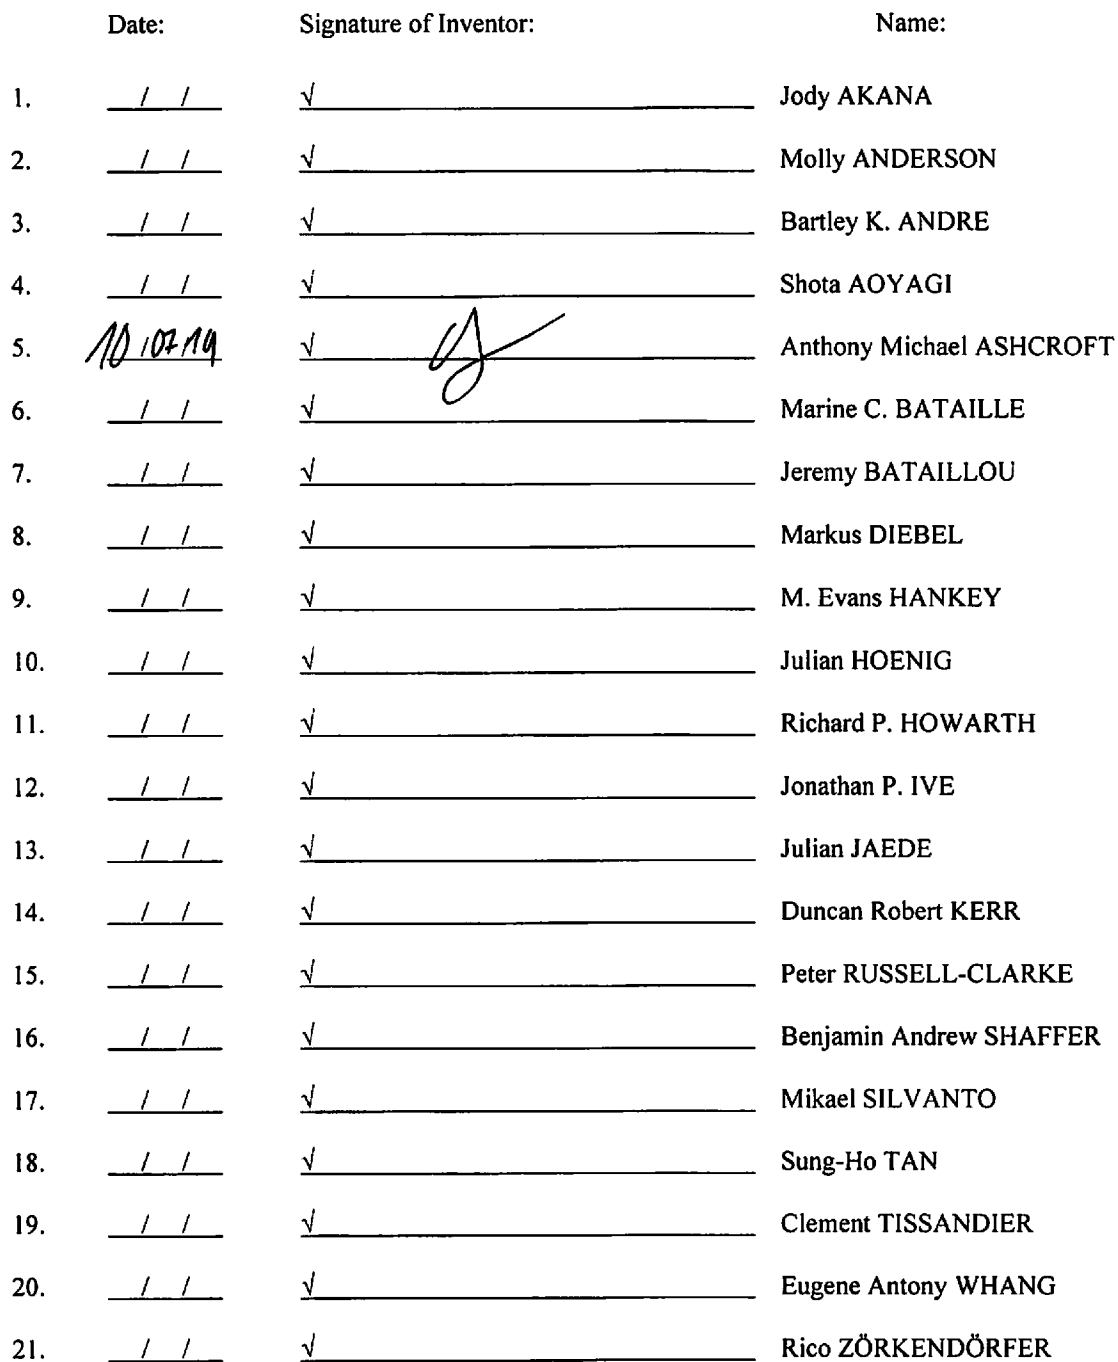 Date: Signature of Inventor: Name:
1. / / √ Jody AKANA
2. / / √ Molly ANDERSON
3. / / √ Bartley K. ANDRE
4. / / √ Shota AOYAGI
5. 10/07/19 √ Anthony Michael ASHCROFT
6. / / √ Marine C. BATAILLE
7. / / √ Jeremy BATAILLOU
8. / / √ Markus DIEBEL
9. / / √ M. Evans HANKEY
10. / / √ Julian HOENIG
11. / / √ Richard P. HOWARTH
12. / / √ Jonathan P. IVE
13. / / √ Julian JAEDE
14. / / √ Duncan Robert KERR
15. / / √ Peter RUSSELL-CLARKE
16. / / √ Benjamin Andrew SHAFFER
17. / / √ Mikael SILVANTO
18. / / √ Sung-Ho TAN
19. / / √ Clement TISSANDIER
20. / / √ Eugene Antony WHANG
21. / / √ Rico ZÖRKENDÖRFER